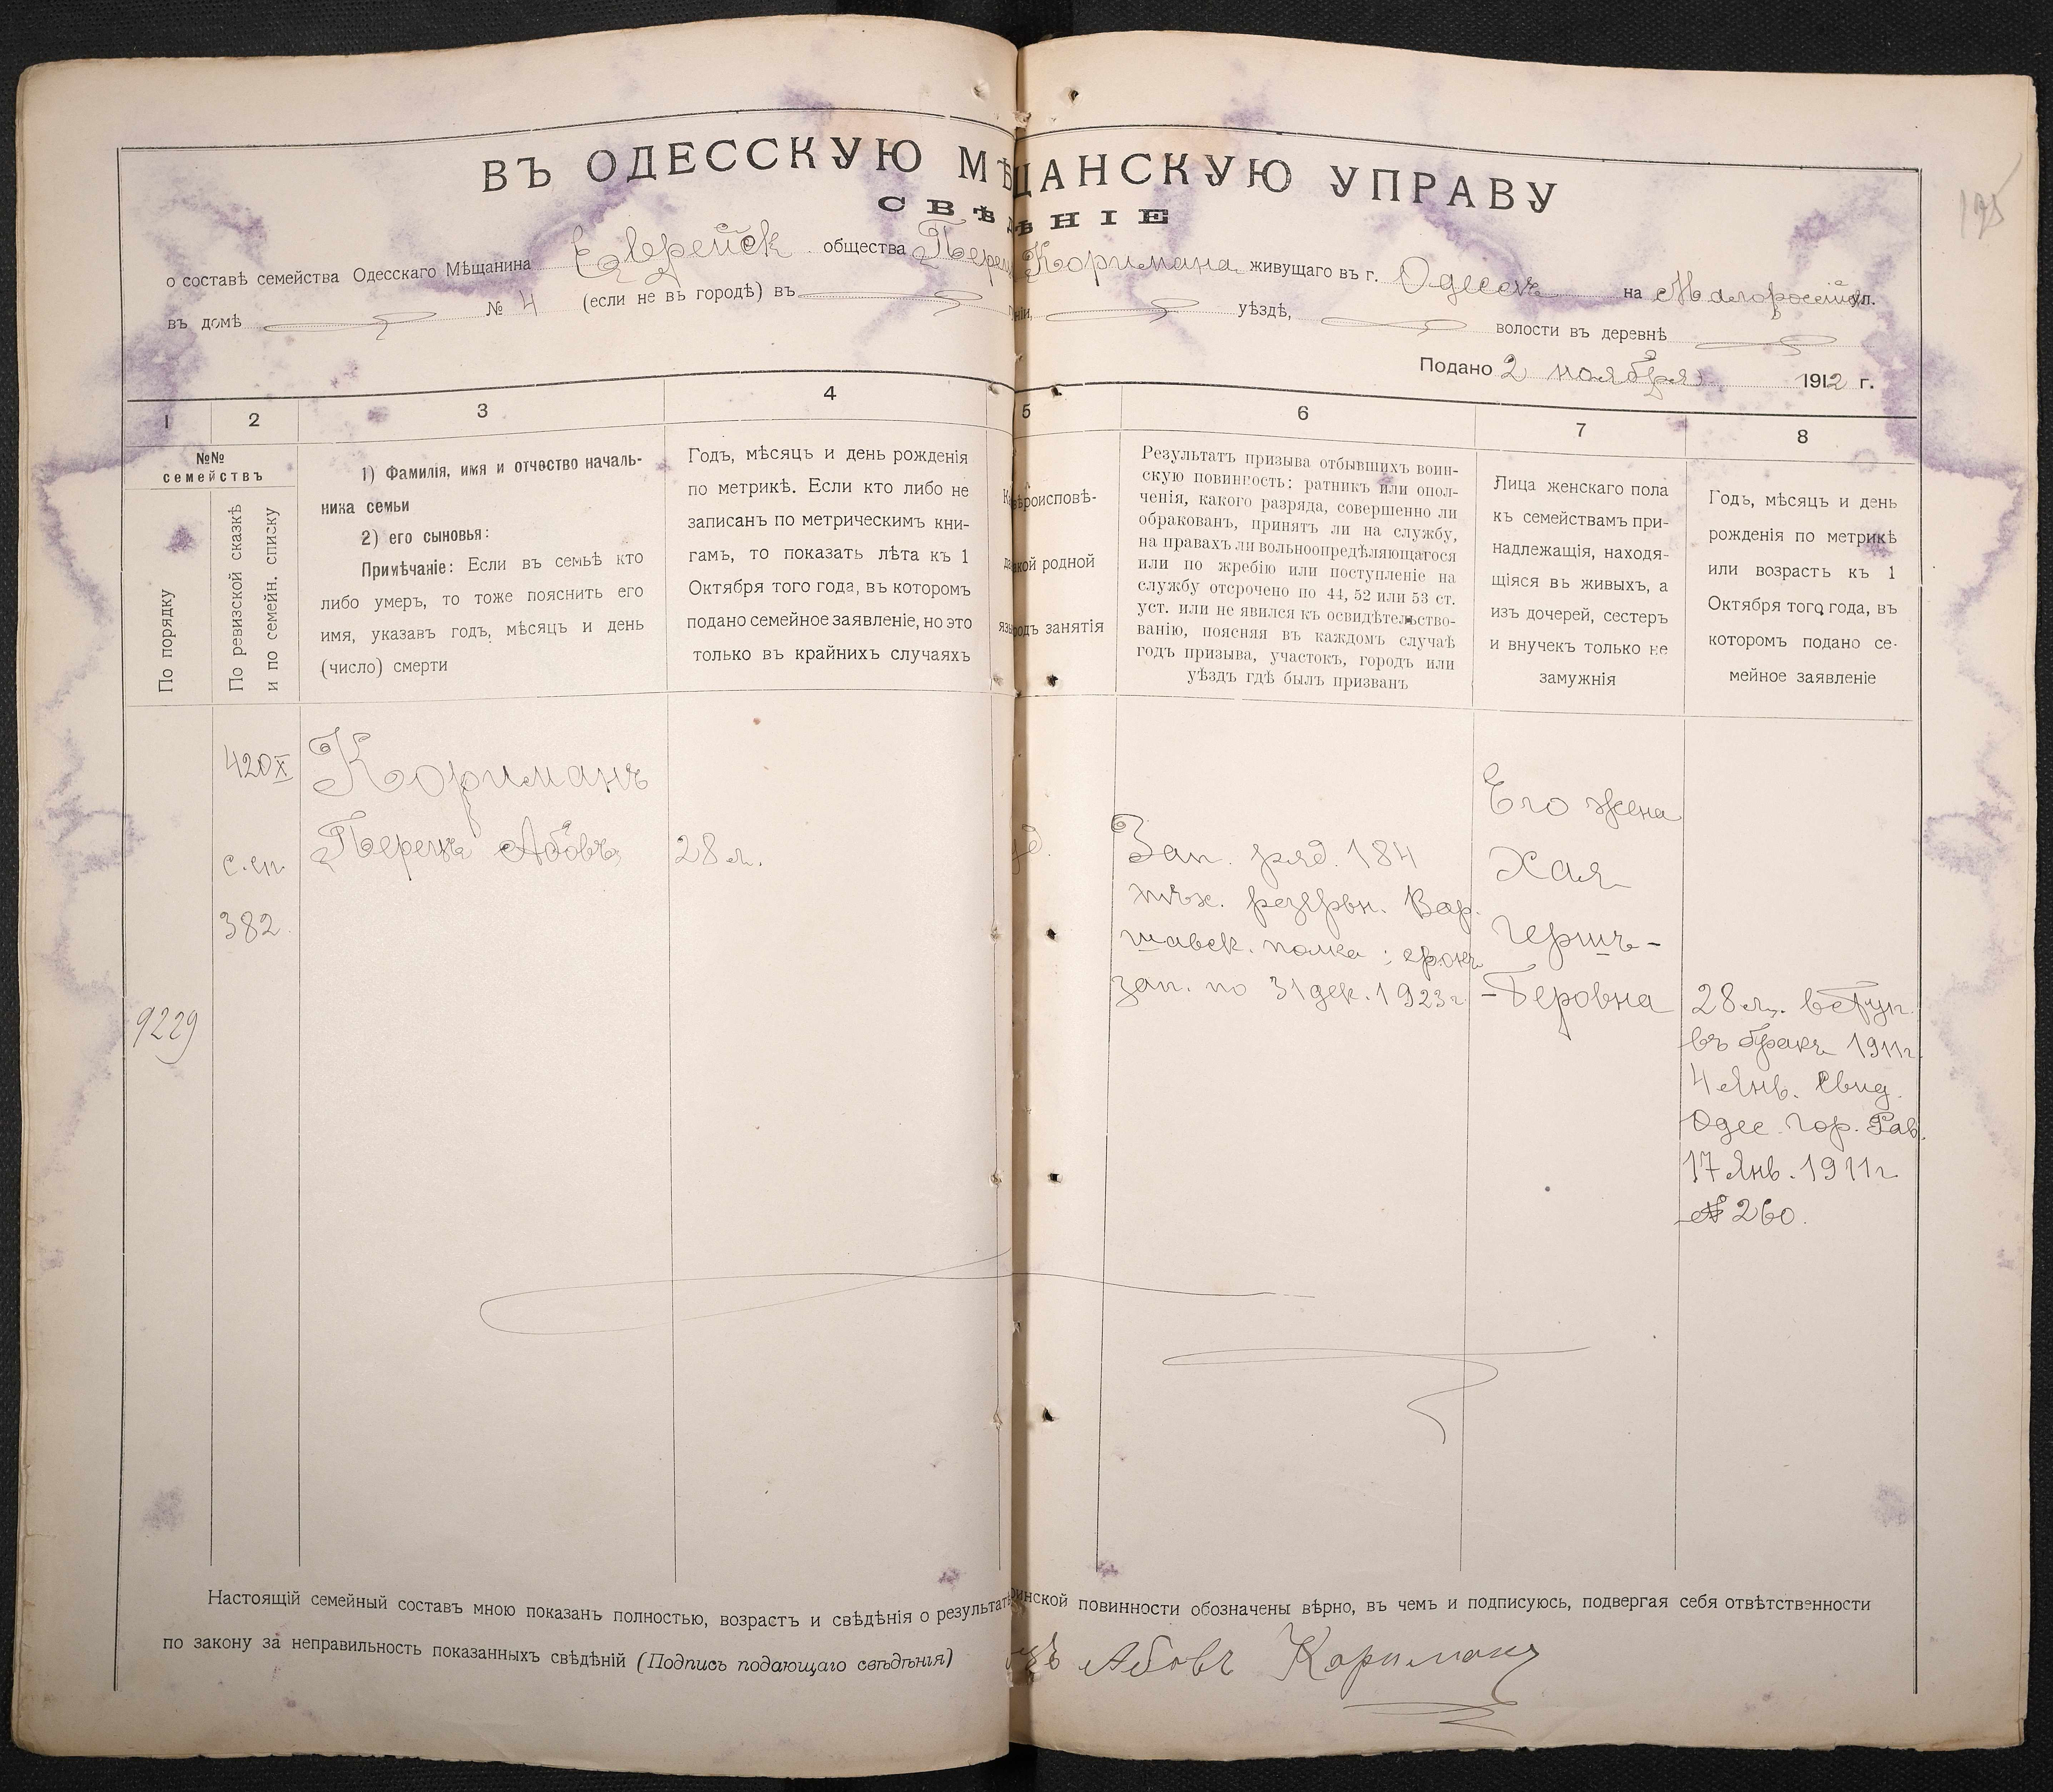 195
ВЪ ОДЕССКУЮ МѢЩАНСКУЮ УПРАВУ
СВѢДѢНІЕ
о составѣ семейства Одесскаго Мѣщанина Еврейск общества Перец Коримана живущаго въ г. Одессѣ на Малоросейск ул.
въ домѣ № 4 (если не въ городѣ) въ ніи, уѣздѣ, волости въ деревнѣ
Подано 2 ноября 1912 г.
1 2 3 4 5 6 7 8
№№ семействъ
По порядку
По ревизской сказкѣ
и по семейн. списку
1) Фамилія, имя и отчество началь-
ника семьи
2) его сыновья:
Примѣчаніе: Если въ семьѣ кто
либо умеръ, то тоже пояснить его
имя, указавъ годъ, мѣсяцъ и день
(число) смерти
Годъ, мѣсяцъ и день рожденія
по метрикѣ. Если кто либо не
записанъ по метрическимъ кни-
гамъ, то показать лѣта къ 1
Октября того года, въ которомъ
подано семейное заявленіе, но это
только въ крайнихъ случаяхъ
вѣроисповѣ-
акой родной
родъ занятія
Результатъ призыва отбывшихъ воин-
скую повинность: ратникъ или опол-
ченія, какого разряда, совершенно ли
обракованъ, принятъ ли на службу,
на правахъ ли вольноопредѣляющагося
или по жребію или поступленіе на
службу отсрочено по 44, 52 или 53 ст.
уст. или не явился къ освидѣтельство-
ванію, поясняя въ каждомъ случаѣ
годъ призыва, участокъ, городъ или
уѣздъ гдѣ былъ призванъ
Лица женскаго пола
къ семействамъ при-
надлежащія, находя-
щіяся въ живыхъ, а
изъ дочерей, сестеръ
и внучекъ только не
замужнія
Годъ, мѣсяцъ и день
рожденія по метрикѣ
или возрастъ къ 1
Октября того года, въ
которомъ подано се-
мейное заявленіе
9229
420 X
с. сп.
382.
Кориманъ
Перецъ Абовъ
28 л.
Зап. ряд. 184
пѣх. резервн. Вар-
шавск. полка; срокъ
зап. по 31 дек. 1923 г
Его жена
Хая
Гершъ-
-Беровна
28 л. вступ.
въ бракъ 1911 г.
4 Янв. Свид.
Одес. Гор. Рав.
17 Янв. 1911 г
№ 260.
Настоящій семейный составъ мною показанъ полностью, возрастъ и свѣдѣнія о результатѣ воинской повинности обозначены вѣрно, въ чемъ и подписуюсь, подвергая себя отвѣтственности
по закону за неправильность показанныхъ свѣдѣній (Подпись подающаго свѣдѣнія) Абовъ Кориманъ